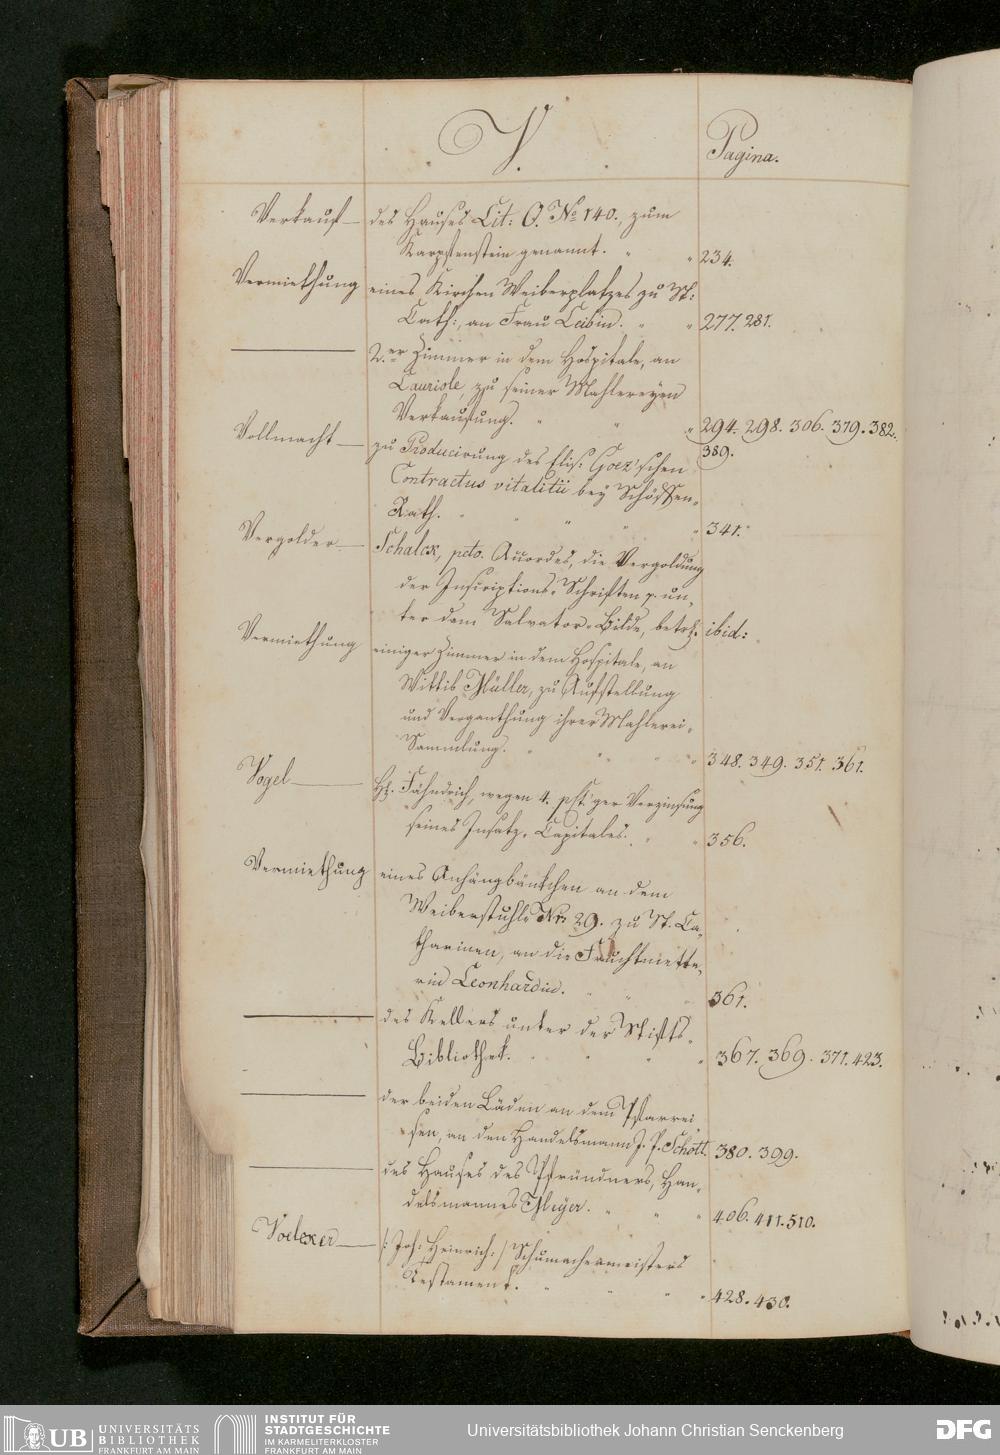 V.
Pagina.
Verkauf — des Hauses Lit: O. No 140., zum
Karpfenstein genannt. 234.
Vermiethung eines Kirchen Weiberplatzes zu St:
Cath:, an Frau Leibin. 277. 281.
— 2.er Zimmer in dem Hospitale, an
Lauriole, zu seiner Mahlereyen
Verkaufung. 294. 298. 306. 379. 382.
389.
Vollmacht — zu Producirung des Elis: Goez'schen
Contractus vitalitii bey Schöffen-
Rath. 341.
Vergolder — Schalck, pcto. Accordes, die Vergoldung
der Inscriptions-Schriften p. un-
ter dem Salvator-Bilde, betrf. ibid:
Vermiethung einiger Zimmer in dem Hospitale, an
Wittib Müller, zu Aufstellung
und Verganthung ihrer Mahlerei-
Sammlung. 348. 349. 351. 361.
Vogel — Fähndrich, wegen 4. pCt.'ger Verzinsung
seines Insatz-Capitales. 356.
Vermiethung eines Anhängbänkchen an dem
Weiberstuhle Nr. 29. zu St. Ca-
tharinen, an die
Leonhardin. 361.
— des Kellers unter der Stifts-
Bibliothek. 367. 369. 371. 423.
— der beiden Läden an dem Pfarrei
sen, an den Handelsmann J. P. Schott. 380. 399.
— des Hauses des Pfründners, Han-
delsmannes Meyer. 406. 411. 510.
Voelcker — /: Joh: Heinrich :/ Schumachermeisters
Testament. 428. 430.
UB UNIVERSITÄTS
BIBLIOTHEK
FRANKFURT AM MAIN
INSTITUT FÜR
STADTGESCHICHTE
IM KARMELITERKLOSTER
FRANKFURT AM MAIN
Universitätsbibliothek Johann Christian Senckenberg
DFG